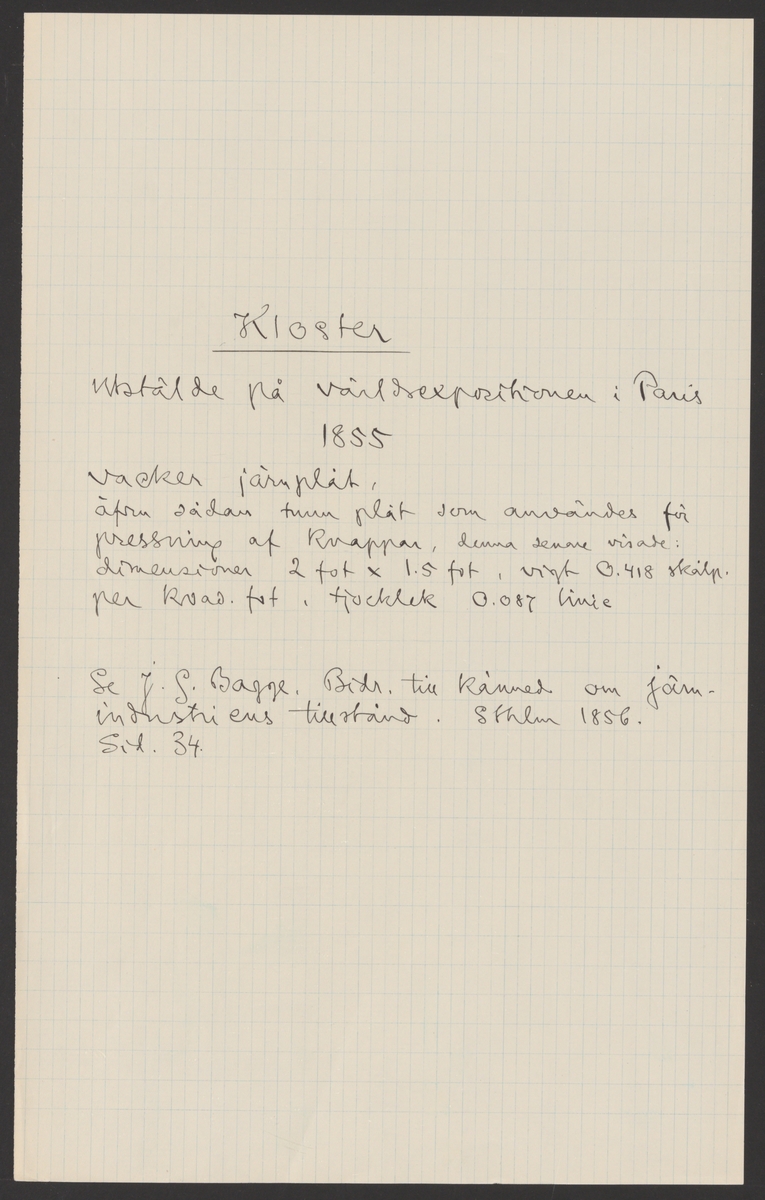 Kloster
utstälde på världsexpositionen i Paris
1855
vacker järnplåt,
äfven sådan tunn plåt som användes för
pressning af knappar, denna senare visade:
dimensioner 2 fot x 1.5 fot, vigt 0.418 skålp.
per kvad. fot, tjocklek 0.087 linie
Se J. S. Bagge. Bidr. till känned om järn-
industriens tillstånd. Sthlm 1856.
Sid. 34.